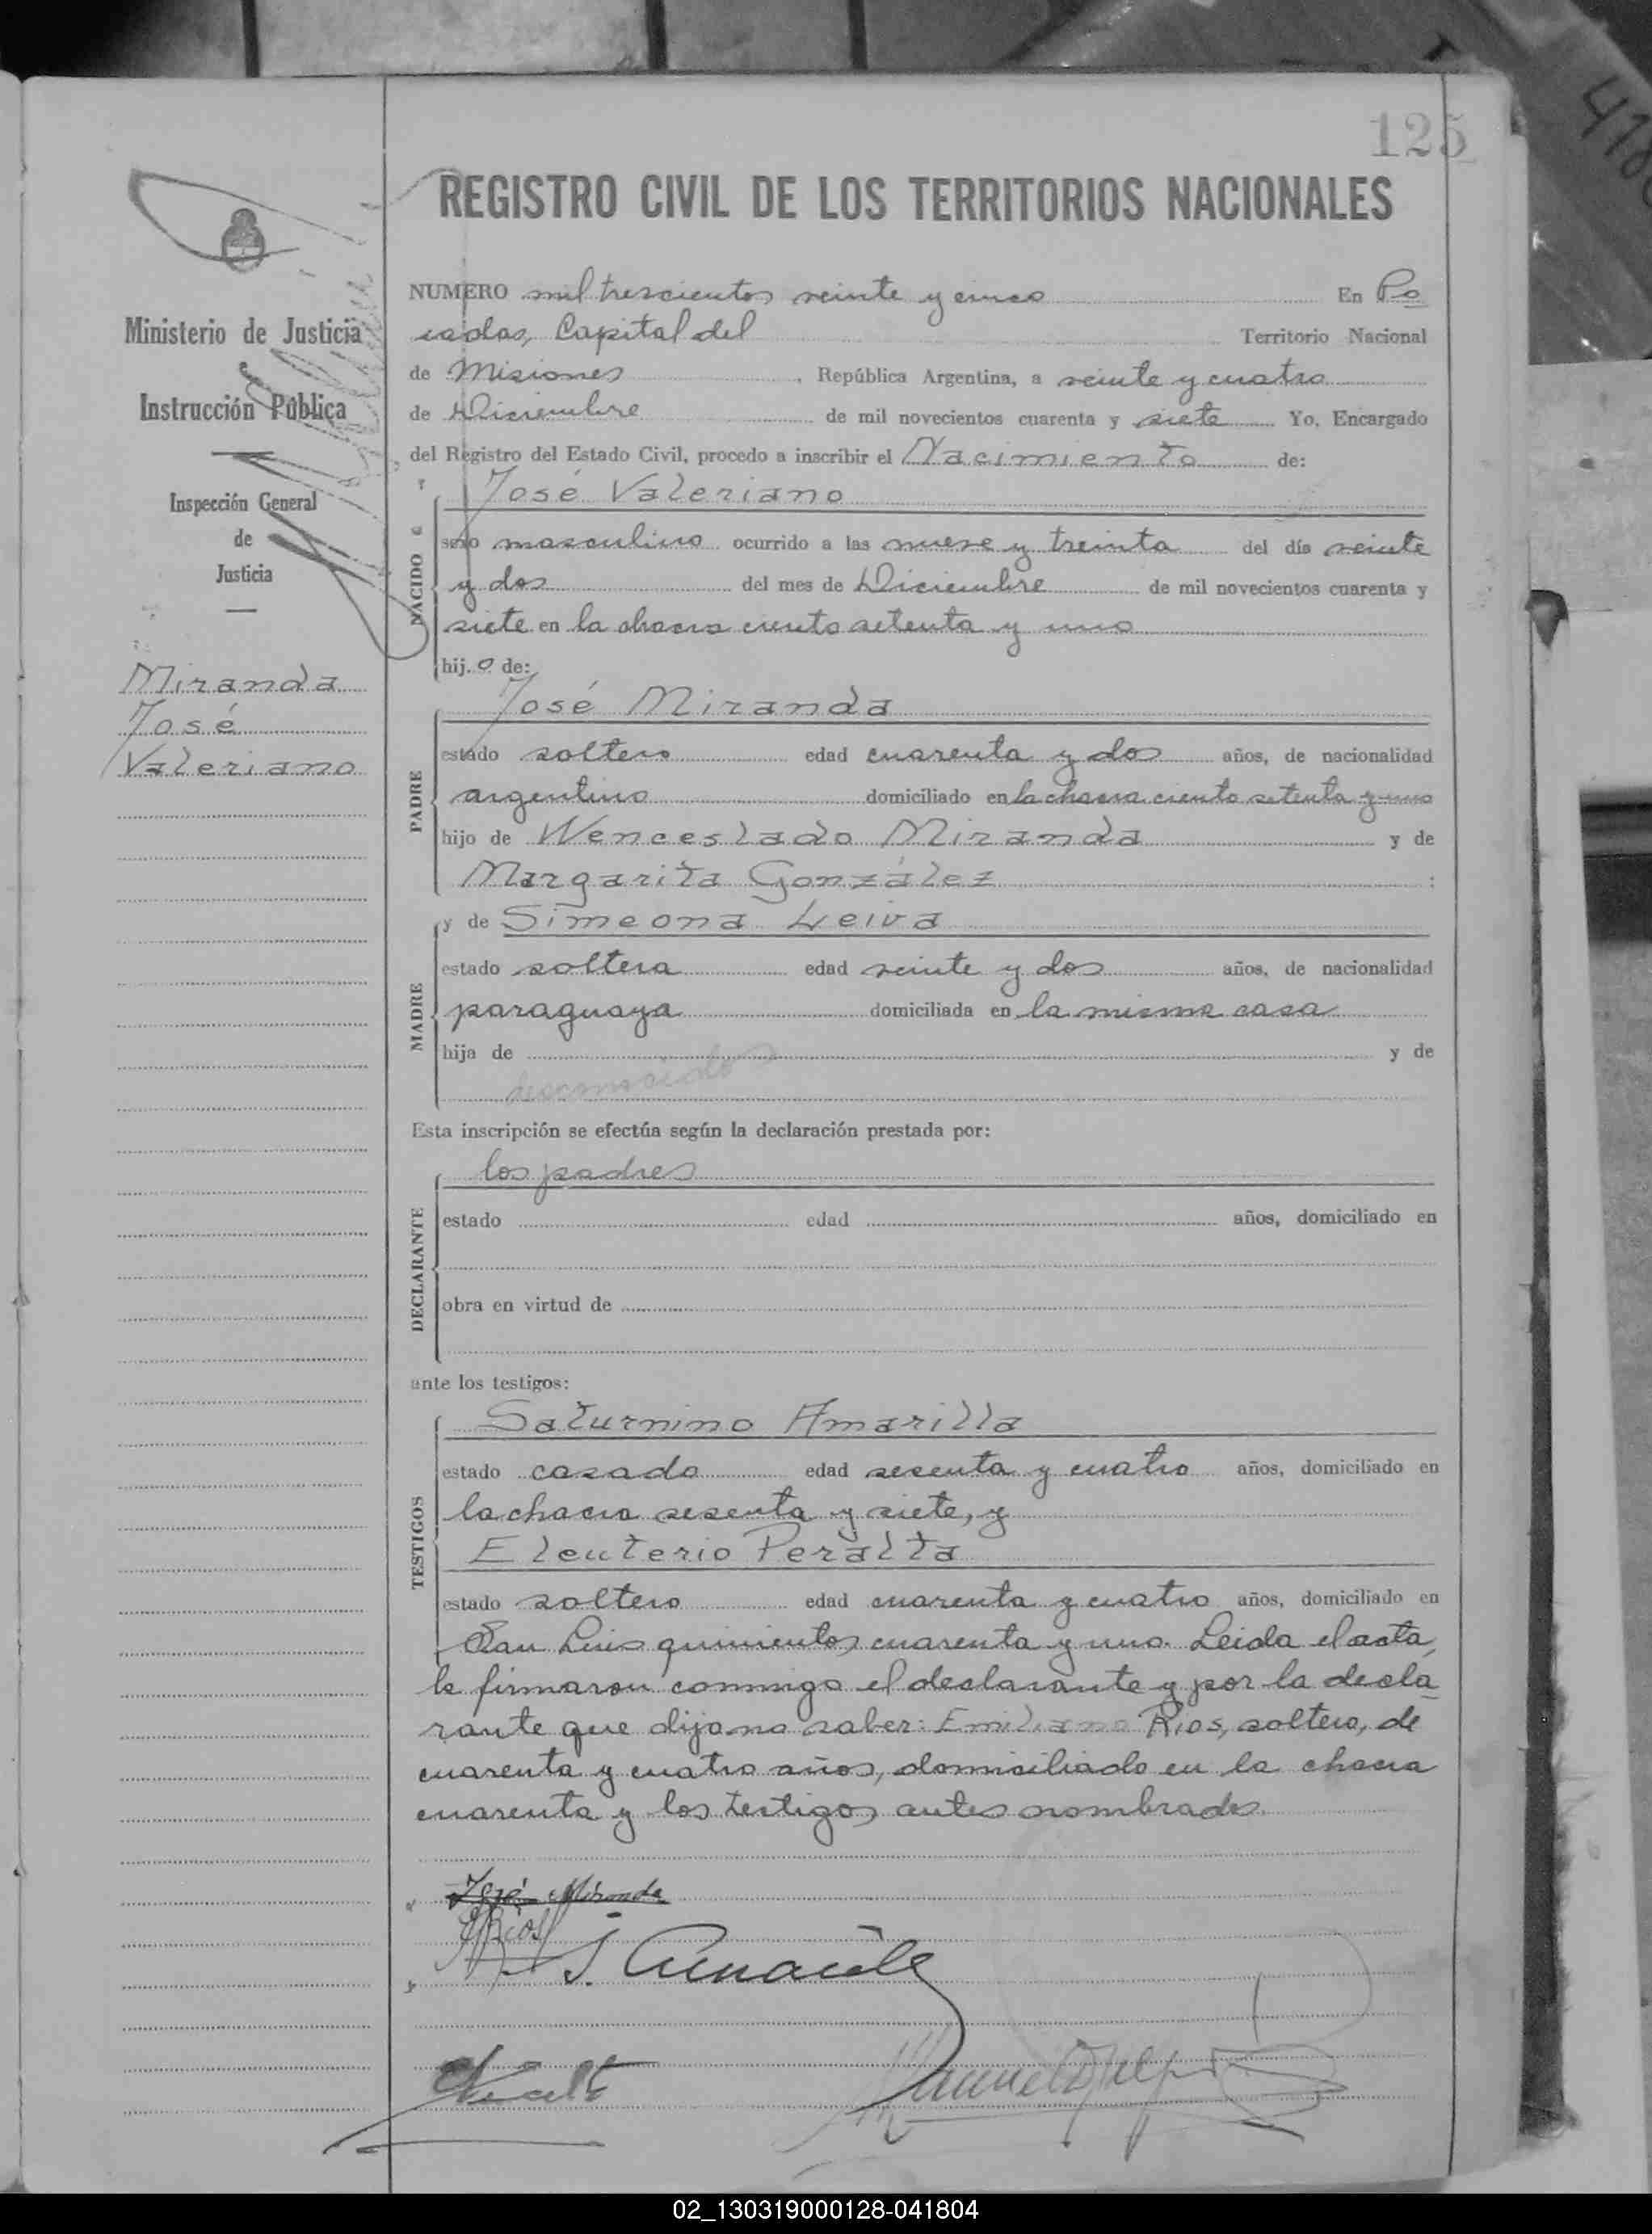 125
REGISTRO CIVIL DE LOS TERRITORIOS NACIONALES
Ministerio de Justicia
Instrucción Pública
Inspección General
de
Justicia
Miranda
José
Valeriano
NUMERO mil trescientos veinte y cinco En Po
sadas, Capital del Territorio Nacional
de Misiones, República Argentina, a veinte y cuatro
de Diciembre de mil novecientos cuarenta y siete Yo, Encargado
del Registro del Estado Civil, procedo a inscribir el Nacimiento de:
NACIDO
José Valeriano
sexo masculino ocurrido a las nueve y treinta del día veinte
y dos del mes de Diciembre de mil novecientos cuarenta y
siete en la chacra ciento setenta y uno
hij.o de:
PADRE
José Miranda
estado soltero edad cuarenta y dos años, de nacionalidad
argentino domiciliado en la chacra ciento setenta y uno
hijo de Wenceslado Miranda y de
Margarita González :
MADRE
y de Simeona Leiva
estado soltera edad veinte y dos años, de nacionalidad
paraguaya domiciliada en la misma casa
hija de y de
Esta inscripción se efectúa según la declaración prestada por:
DECLARANTE
los padres
estado edad años, domiciliado en
obra en virtud de
ante los testigos:
TESTIGOS
Saturnino Amarilla
estado casado edad sesenta y cuatro años, domiciliado en
la chacra sesenta y siete, y
Eleuterio Peralta
estado soltero edad cuarenta y cuatro años, domiciliado en
San Luis quinientos cuarenta y uno. Leida el acta,
la firmaron conmigo el declarante y por la decla
rante que dijo no saber: Emiliano Rios, soltero, de
cuarenta y cuatro años, domiciliado en la chacra
cuarenta y los testigos antes nombrados.
José Miranda
ERios
02_130319000128-041804